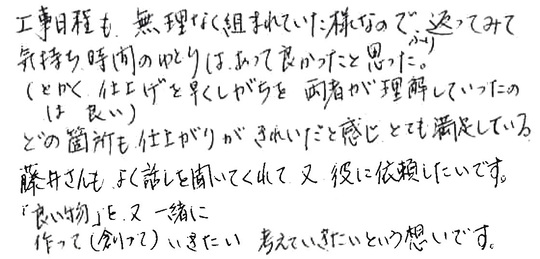 工事日程も、無理なく組まれていた様なので、返ってみて
ふり
気持ち、時間のゆとりは、あって良かったと思った。
(とかく、仕上げを早くしがちを 両者が理解していったの
は 良い)
どの箇所も、仕上がりが きれいだと感じ、とても満足している
藤井さんも、よく話しを聞いてくれて 又 役に依頼したいです。
「良い物」を、又 一緒に
作って(創って)いきたい 考えていきたいという想いです。